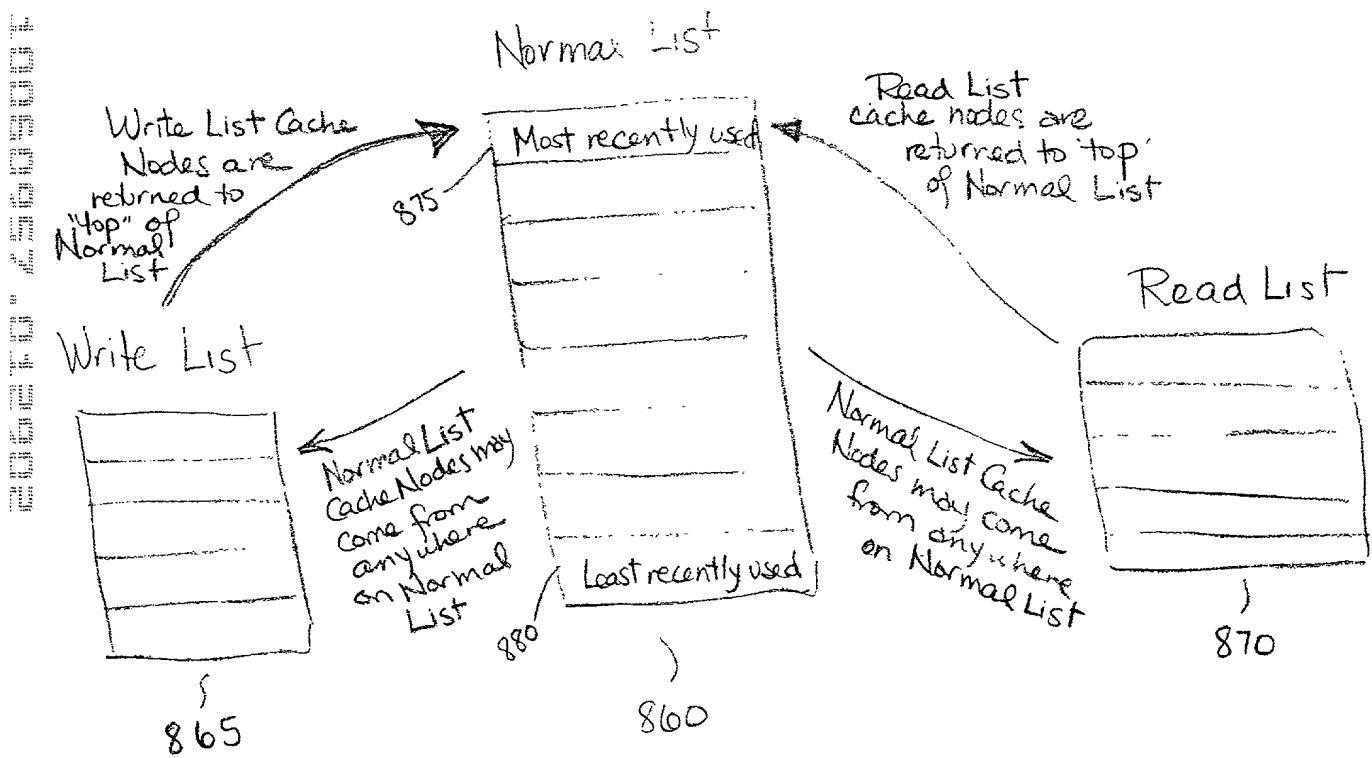 Normal List
Write List Cache
Nodes are
returned to
"top" of
Normal
List
Most recently used
875
Read List
cache nodes are
returned to 'top'
of Normal List
Write List
Read List
Normal List
Cache Nodes may
come from
anywhere
on Normal
List
Normal List Cache
Nodes may come
from anywhere
on Normal List
Least recently used
880
865
860
870